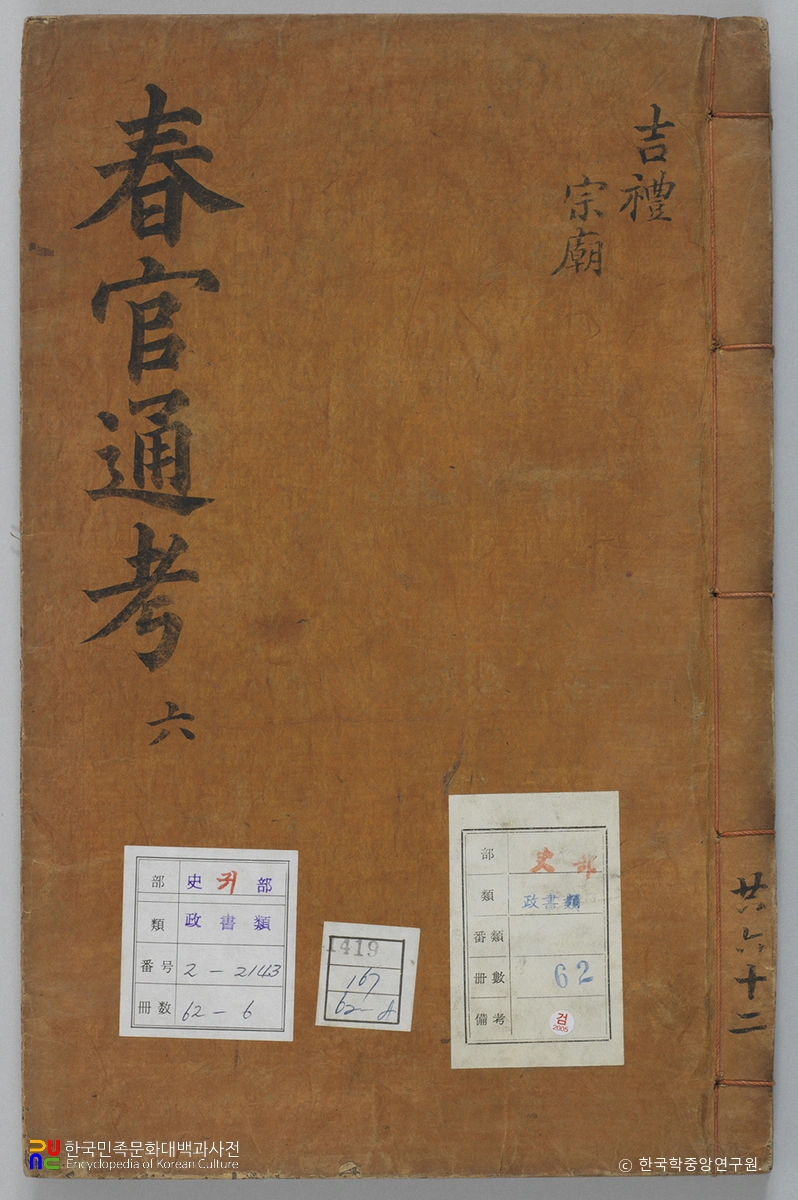 吉禮
宗廟
春官通考 六
共六十二
部 史 귀 部
類 政書類
番号 2-2143
冊数 62-6
1419
167
部 史部
類 政書類
番類
冊數 62
備考 검
2005
한국민족문화대백과사전
Encyclopedia of Korean Culture
© 한국학중앙연구원